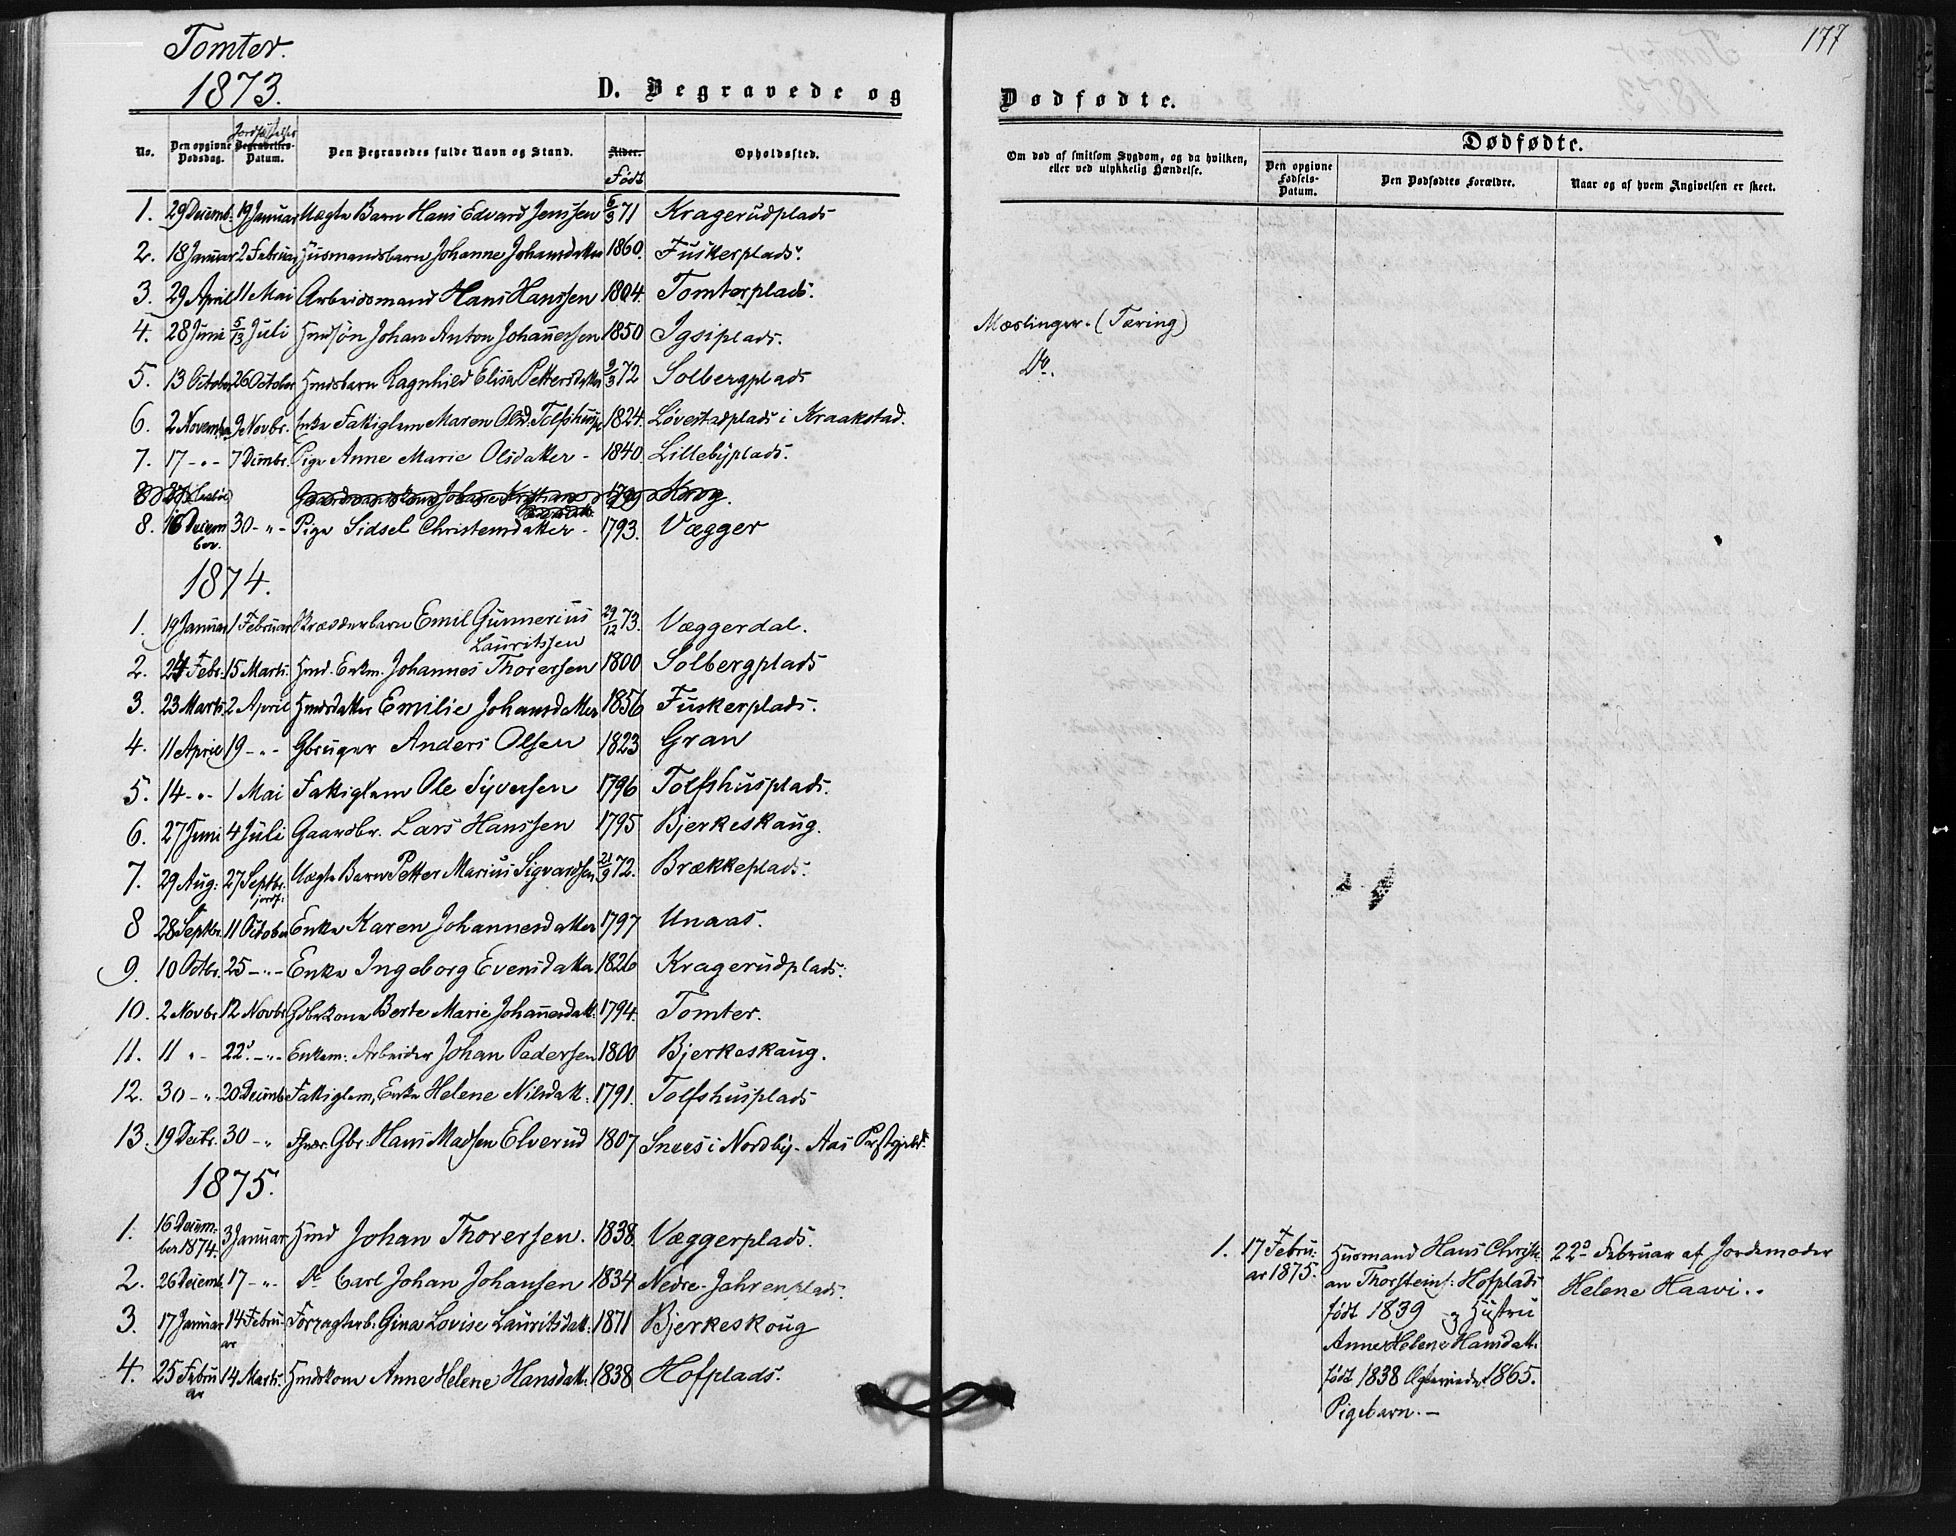 Tomter.
1873.
D. Begravede og
No. Den opgivne Dødsdag. Jordfæstelses Begravelses-Datum. Den Begravedes fulde Navn og Stand. Alder. Født Opholdssted.
1. 29 Decemb. 19 Januar Uægte Barn Hans Edvard Jenssen 6/3 71 Kragerudplads
2. 18 Januar 2 Februar Husmandsbarn Johanne Johansdatter 1860. Fuskerplads.
3. 29 April 11 Mai Arbeidsmand Hans Hanssen 1804. Tomterplads.
4. 28 Juni 5/13 Juli Hmdsøn Johan Anton Johannessen 1850 Igsiplads.
5. 13 October 26 October Hmdsbarn Ragnhild Elisa Pettersdatter 9/3 72 Solbergplads
6. 2 November 9 Novbr. Enke Fattiglem Maren Olsd. Tolfshuspl 1824. Løvestadplads i Kraakstad.
7. 17 -"- 7 Decmbr. Pige Anne Marie Olsdatter - 1840. Lillebyplads.
8 Krog.
8. 16 December. 30 -"- Pige Sidsel Christensdatter - 1793. Vægger
1874.
1. 19 Januar 1 Februar Skræderbarn Emil Gunnerius Lauritssen 29/12 73. Væggerdal.
2. 24 Febr. 15 Marts. Hmd. Enkm. Johannes Thorersen 1800 Solbergplads
3. 23 Marts 2 April Hmdsdatter Emilie Johansdatter 1856 Fuskerplads.
4. 11 April 19 -"- Gbruger Anders Olsen 1823 Gran
5. 14 -"- 1 Mai Fattiglem Ole Syversen 1796 Tolfshusplads.
6. 27 Juni 4 Juli Gaardbr. Lars Hanssen 1795 Bjerkeskaug.
7. 29 Aug: 27 Septbr. jordf: Uægte Barn Petter Marius Sigvardsen 21/9 72. Brækkeplads.
8 28 Septbr. 11 October Enke Karen Johannesdatter 1797 Unaas.
9. 10 Octbr. 25 -"- Enke Ingeborg Evensdatter 1826 Kragerudplads.
10. 2 Novbr. 12 Novbr. Gbrkone Berte Marie Johannesdatt. 1794. Tomter.
11. 11 "- 22. -"- Enkem: Arbeider Johan Pedersen 1800 Bjerkeskaug.
12. 30 -"- 20 Decemb Fattiglem, Enke Helene Nilsdatt. 1791. Tolfshusplads
13. 19 Decbr. 30 -" Gbr. Hans Madsen Elverud 1807. Snees i Nordby - Aas Præstgjeld.
1875.
1. 16 December 1874. 3 Januar Hmd Johan Thorersen. 1838. Væggerplads.
2. 26 Decemb. 17 -"- Do Carl Johan Johansen 1834 Nedre-Jahrenplads.
3. 17 Januar 14 Februar Forpagterb. Gina Lovise Lauritsdatt. 1871 Bjerkeskoug
4. 25 Februar 14 Marts. Hmdskone Anne Helene Hansdatt. 1838 Hofplads.
177
Dødfødte.
Om død af smitsom Sygdom, og da hvilken, eller ved ulykkelig Hændelse.
Dødfødte.
Den opgivne Fødsels-Datum. Den Dødfødtes Forældre. Naar og af hvem Angivelsen er skeet.
Mæslinger. (Tæring)
Do.
1. 17 Februar 1875. Husmand Hans Christian Thorsteins: Hofplads født 1839 og Hustru Anne Helene Hansdatt. født 1838 Ægteviede 1865. Pigebarn. —
22d Februar af Jordemoder Helene Haavi..